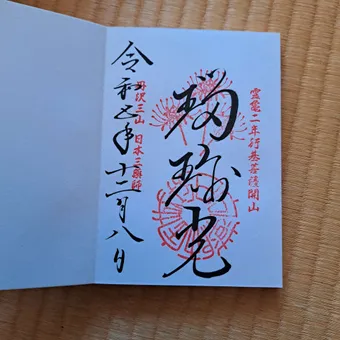 靈龜二年行基菩薩開山
瑠璃光
丹沢三山 日本三薬師
令和五年十二月八日